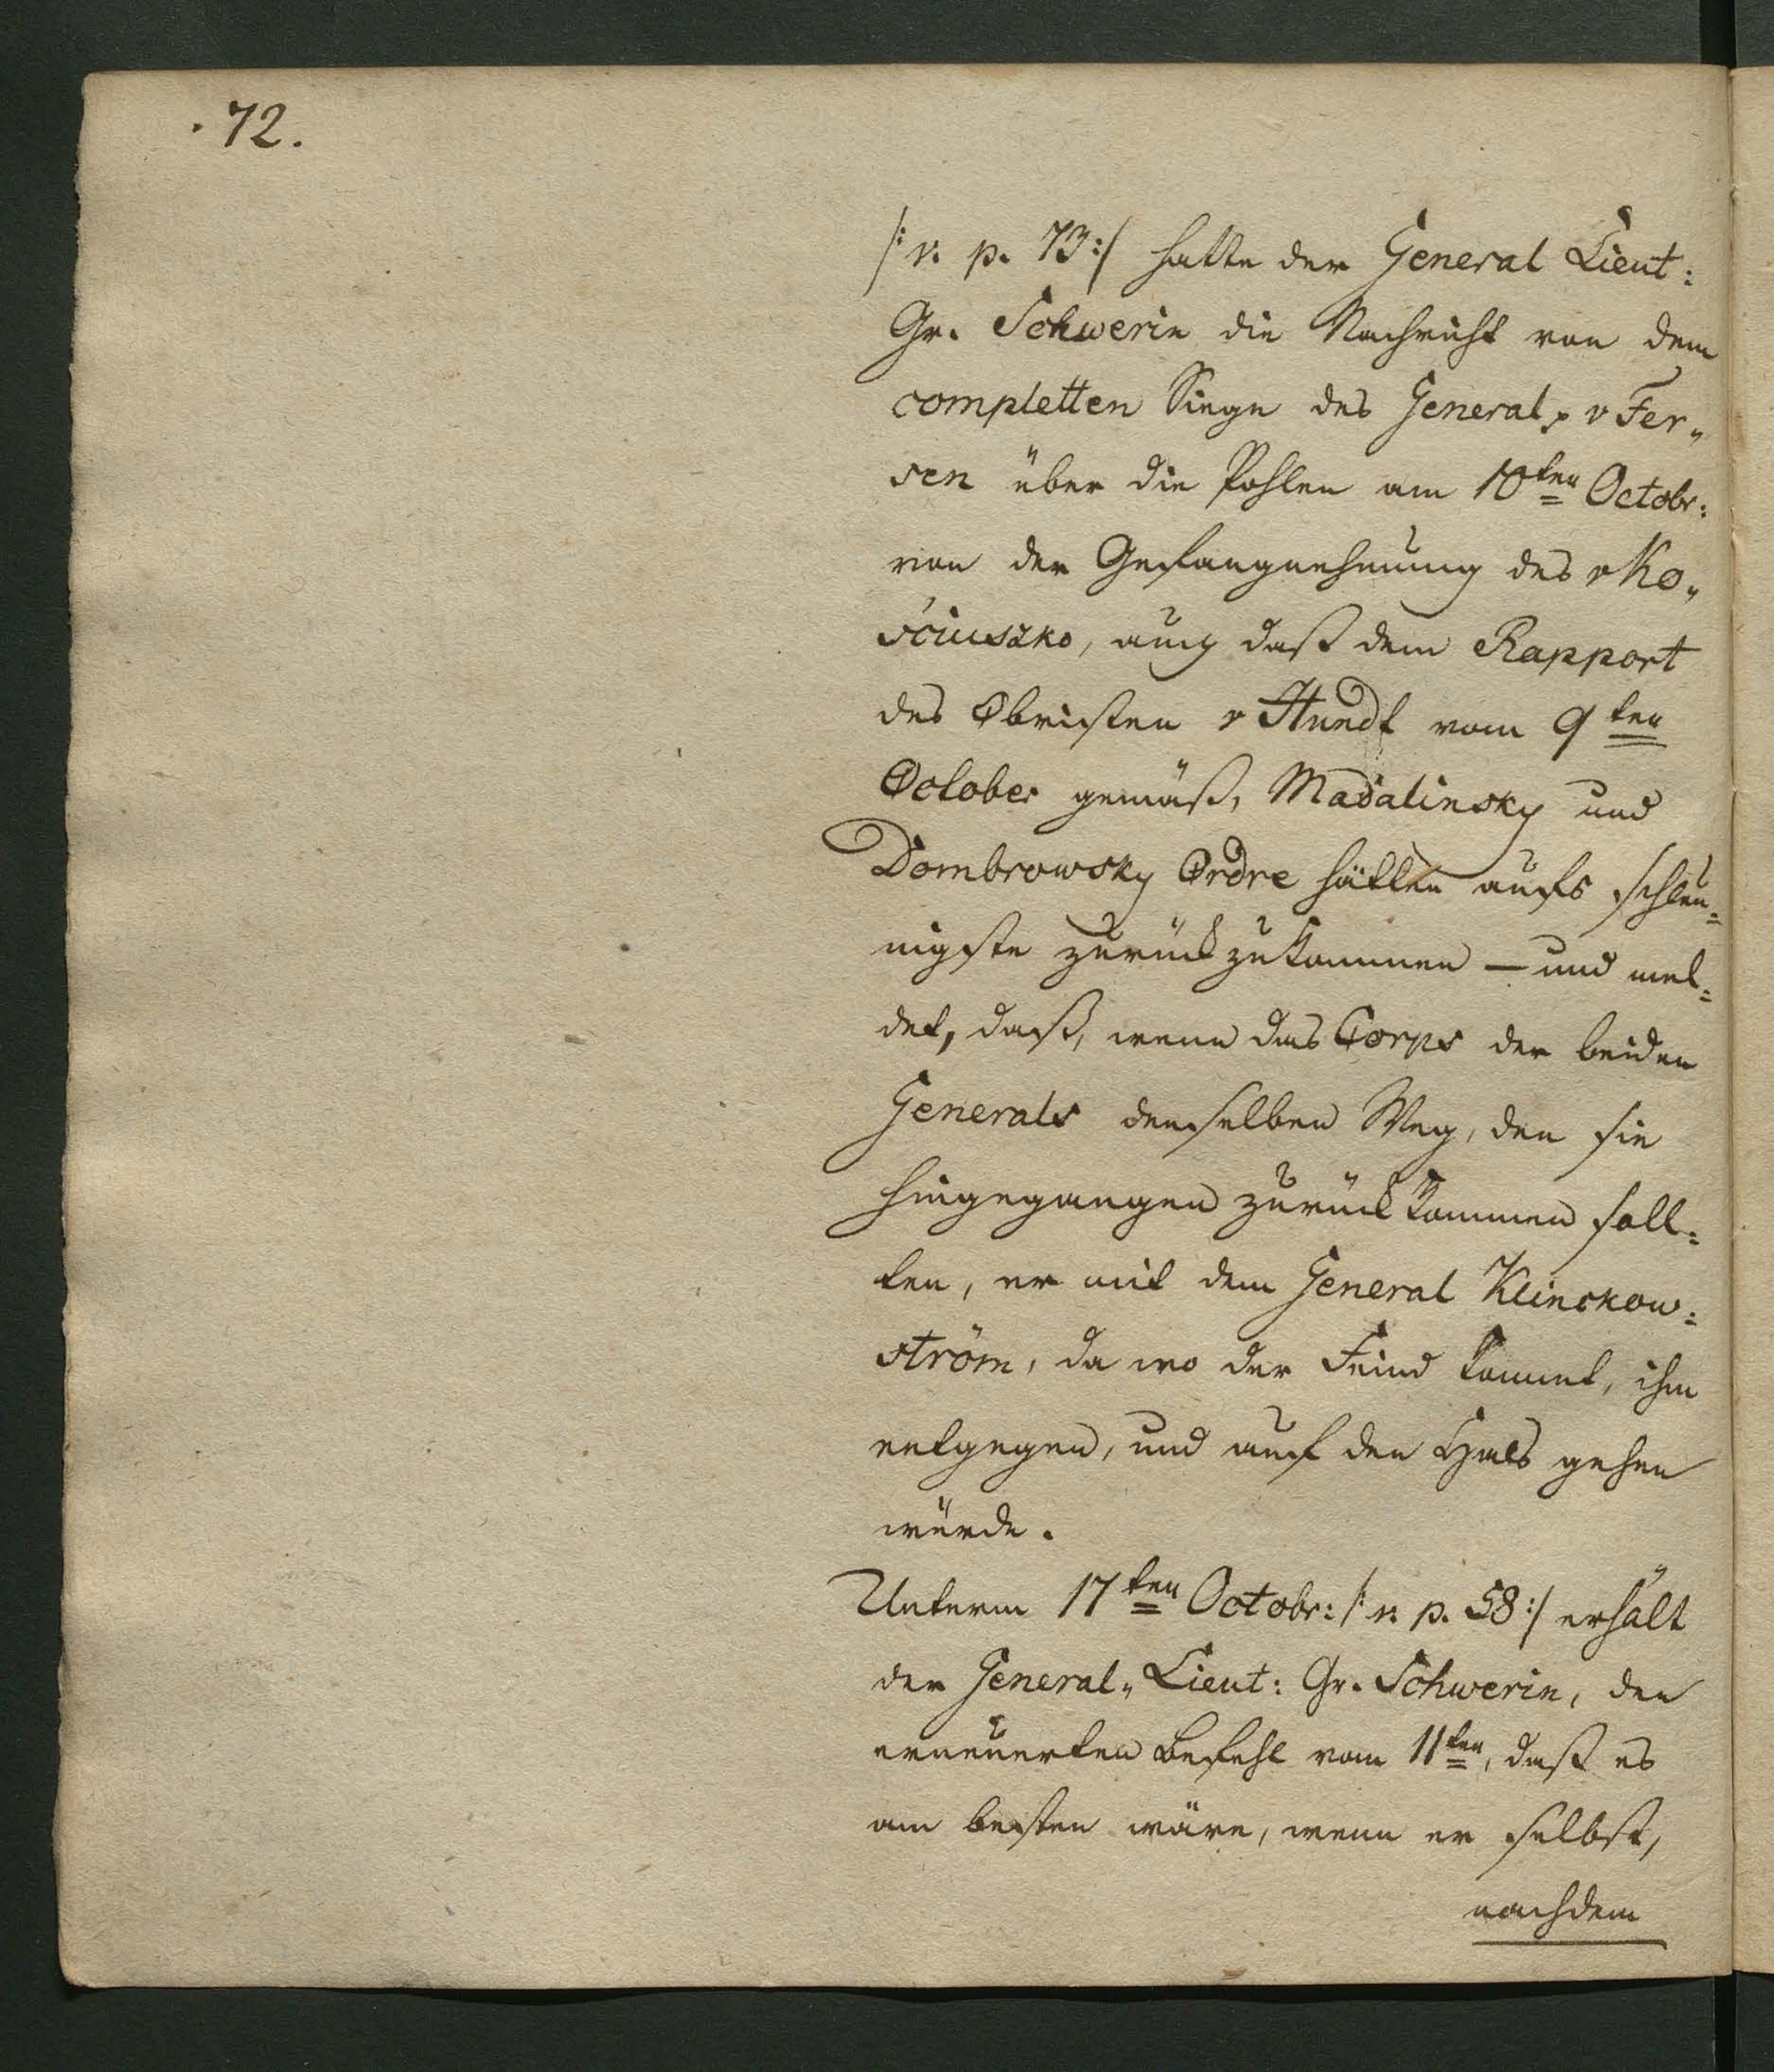 . 72.
/: v. p. 73 :/ hatte der General Lieut:
Gr. Schwerin die Nachricht von dem
completten Siege des Generals v Fer„
sen über die Pohlen am 10ten Octobr:
von der Gefangnehmung des v Ko„
ściuszko, auch daß dem Rapport
des Obristen v Hundt vom 9ten
October gemäß, Madalinsky und
Dombrowsky Ordre hätten aufs schleu=
nigste zurückzukommen — und mel=
det, daß, wenn das Corps der beiden
Generals denselben Weg, den sie
hingegangen zurück kommen soll=
ten, er mit dem General Klinckow=
ström, da wo der Feind kommt, ihm
entgegen, und auf den Hals gehen
würde.
Unterm 17ten Octobr: /: v. p. 58 :/ erhält
der General„ Lieut: Gr. Schwerin, den
erneuerten Befehl vom 11ten, daß es
am besten wäre, wenn er selbst,
nachdem